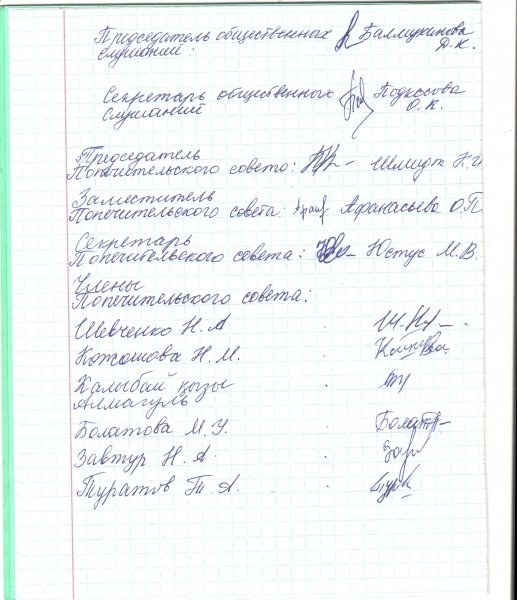 Председатель общественных Балмукинова
слушаний: Д.К.
Секретарь общественных Подкосова
слушаний О.К.
Председатель
Попечительского совета: Шмидт Н.И
Заместитель
Попечительского совета: Афанасьева О.П
Секретарь
Попечительского совета: Юстус М.В.
Члены
Попечительского совета:
Шевченко Н.А
Кожошова Н.М.
Калыбай қызы
Алмагуль
Болатова М.У.
Завтур Н.А.
Туратов Т.А.